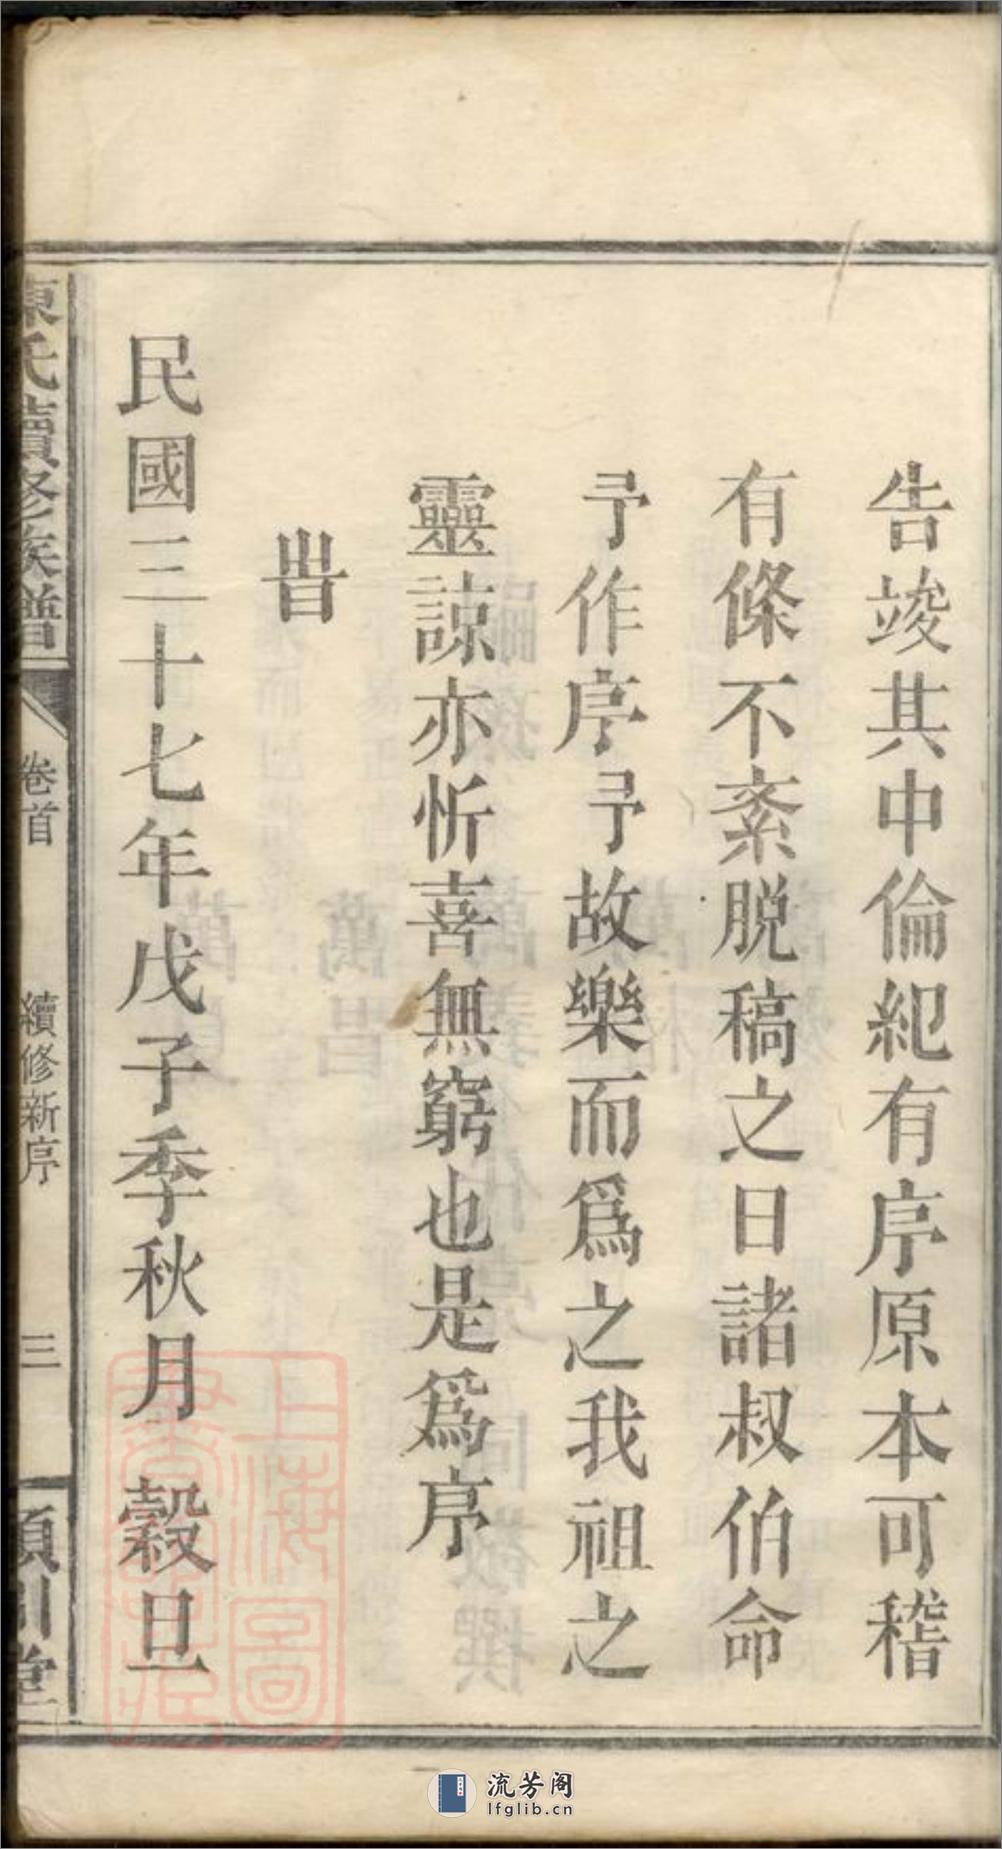 告竣其中倫紀有序原本可稽
有條不紊脫稿之日諸叔伯命
予作序予故樂而爲之我祖之
靈諒亦忻喜無窮也是爲序
旹
民國三十七年戊子季秋月　穀旦
陳氏續修族譜
卷首
續修新序
三
潁川堂
上海圖書館藏
流芳阁
lfglib.cn